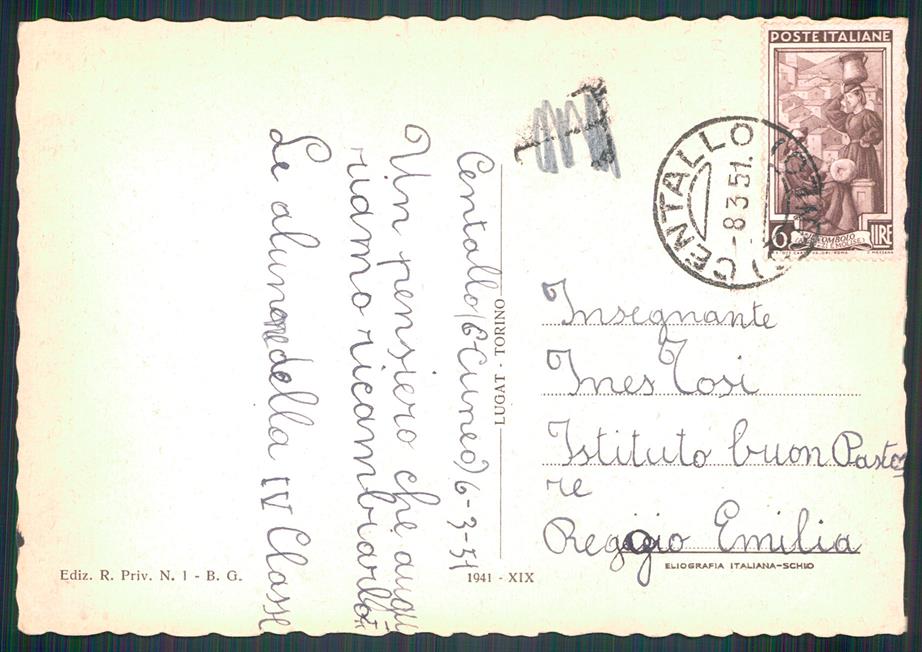 POSTE ITALIANE
6 LIRE
CENTALLO
-8 3 51.
Centallo (Cuneo) 6-3-51
Un pensiero che augu
riamo ricambiarlo
Le alunne della IV Classe
Insegnante
Ines Tosi
Istituto buon Pasto
re
Reggio Emilia
LUGAT - TORINO
ELIOGRAFIA ITALIANA-SCHIO
Ediz. R. Priv. N. 1 - B. G.
1941 - XIX